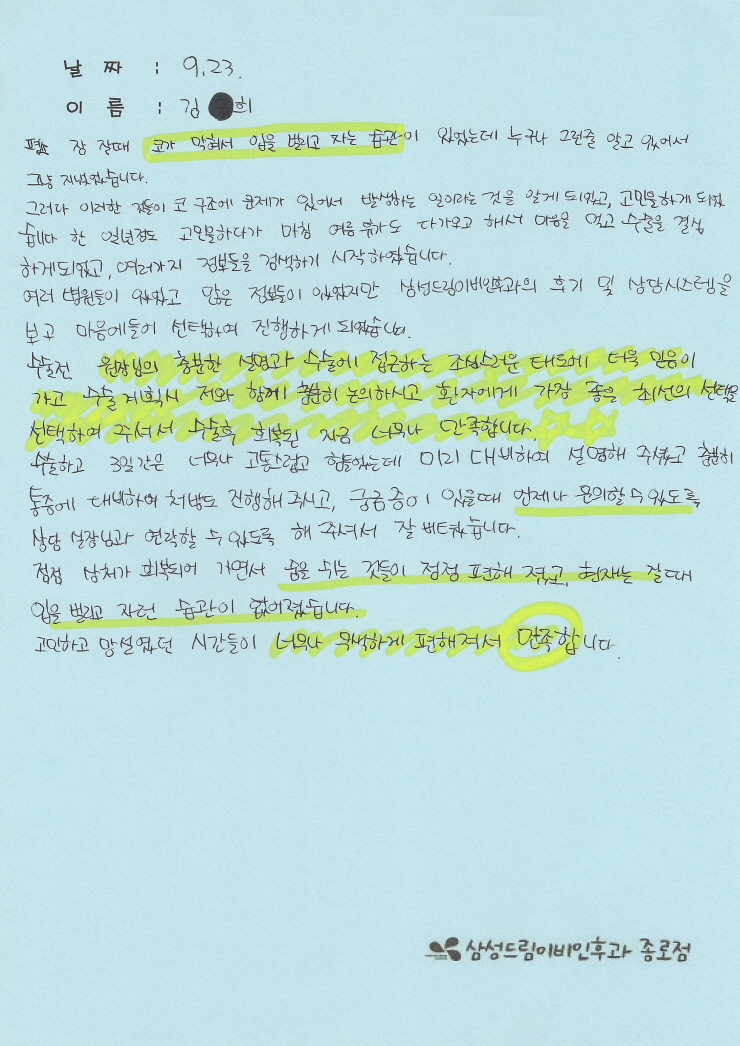 날 짜 : 9.23.
이 름 : 김 희
평소 잠 잘때 코가 막혀서 입을 벌리고 자는 습관이 있었는데 누구나 그런줄 알고 있어서
그냥 지냈었습니다.
그러다 이러한 것들이 코 구조에 문제가 있어서 발생하는 일이라는 것을 알게 되었고, 고민을하게 되었
습니다 한 일년정도 고민을하다가 마침 여름휴가도 다가오고 해서 마음을 먹고 수술을 결심
하게되었고, 여러가지 정보들을 검색하기 시작하였습니다.
여러 병원들이 있었고 많은 정보들이 있었지만 삼성드림이비인후과의 후기 및 상담시스템을
보고 마음에들어 선택하여 진행하게 되었습니다.
수술전 원장님의 충분한 설명과 수술에 접근하는 조심스러운 태도에 더욱 믿음이
가고 수술계획시 저와 함께 충분히 논의하시고 환자에게 가장 좋은 최선의 선택을
선택하여 주셔서 수술후 회복된 지금 너무나 만족합니다.
수술하고 3일간은 너무나 고통스럽고 힘들었는데 미리 대비하여 설명해 주셨고 충분히
통증에 대비하여 처방도 진행해 주시고, 궁금증이 있을때 언제나 문의할 수 있도록
상담 실장님과 연락할 수 있도록 해 주셔서 잘 버텼습니다.
점점 상처가 회복되어 가면서 숨을 쉬는 것들이 점점 편해 졌고, 현재는 잘때
입을 벌리고 자던 습관이 없어졌습니다.
고민하고 망설였던 시간들이 너무나 무색하게 편해져서 만족합니다.
삼성드림이비인후과 종로점